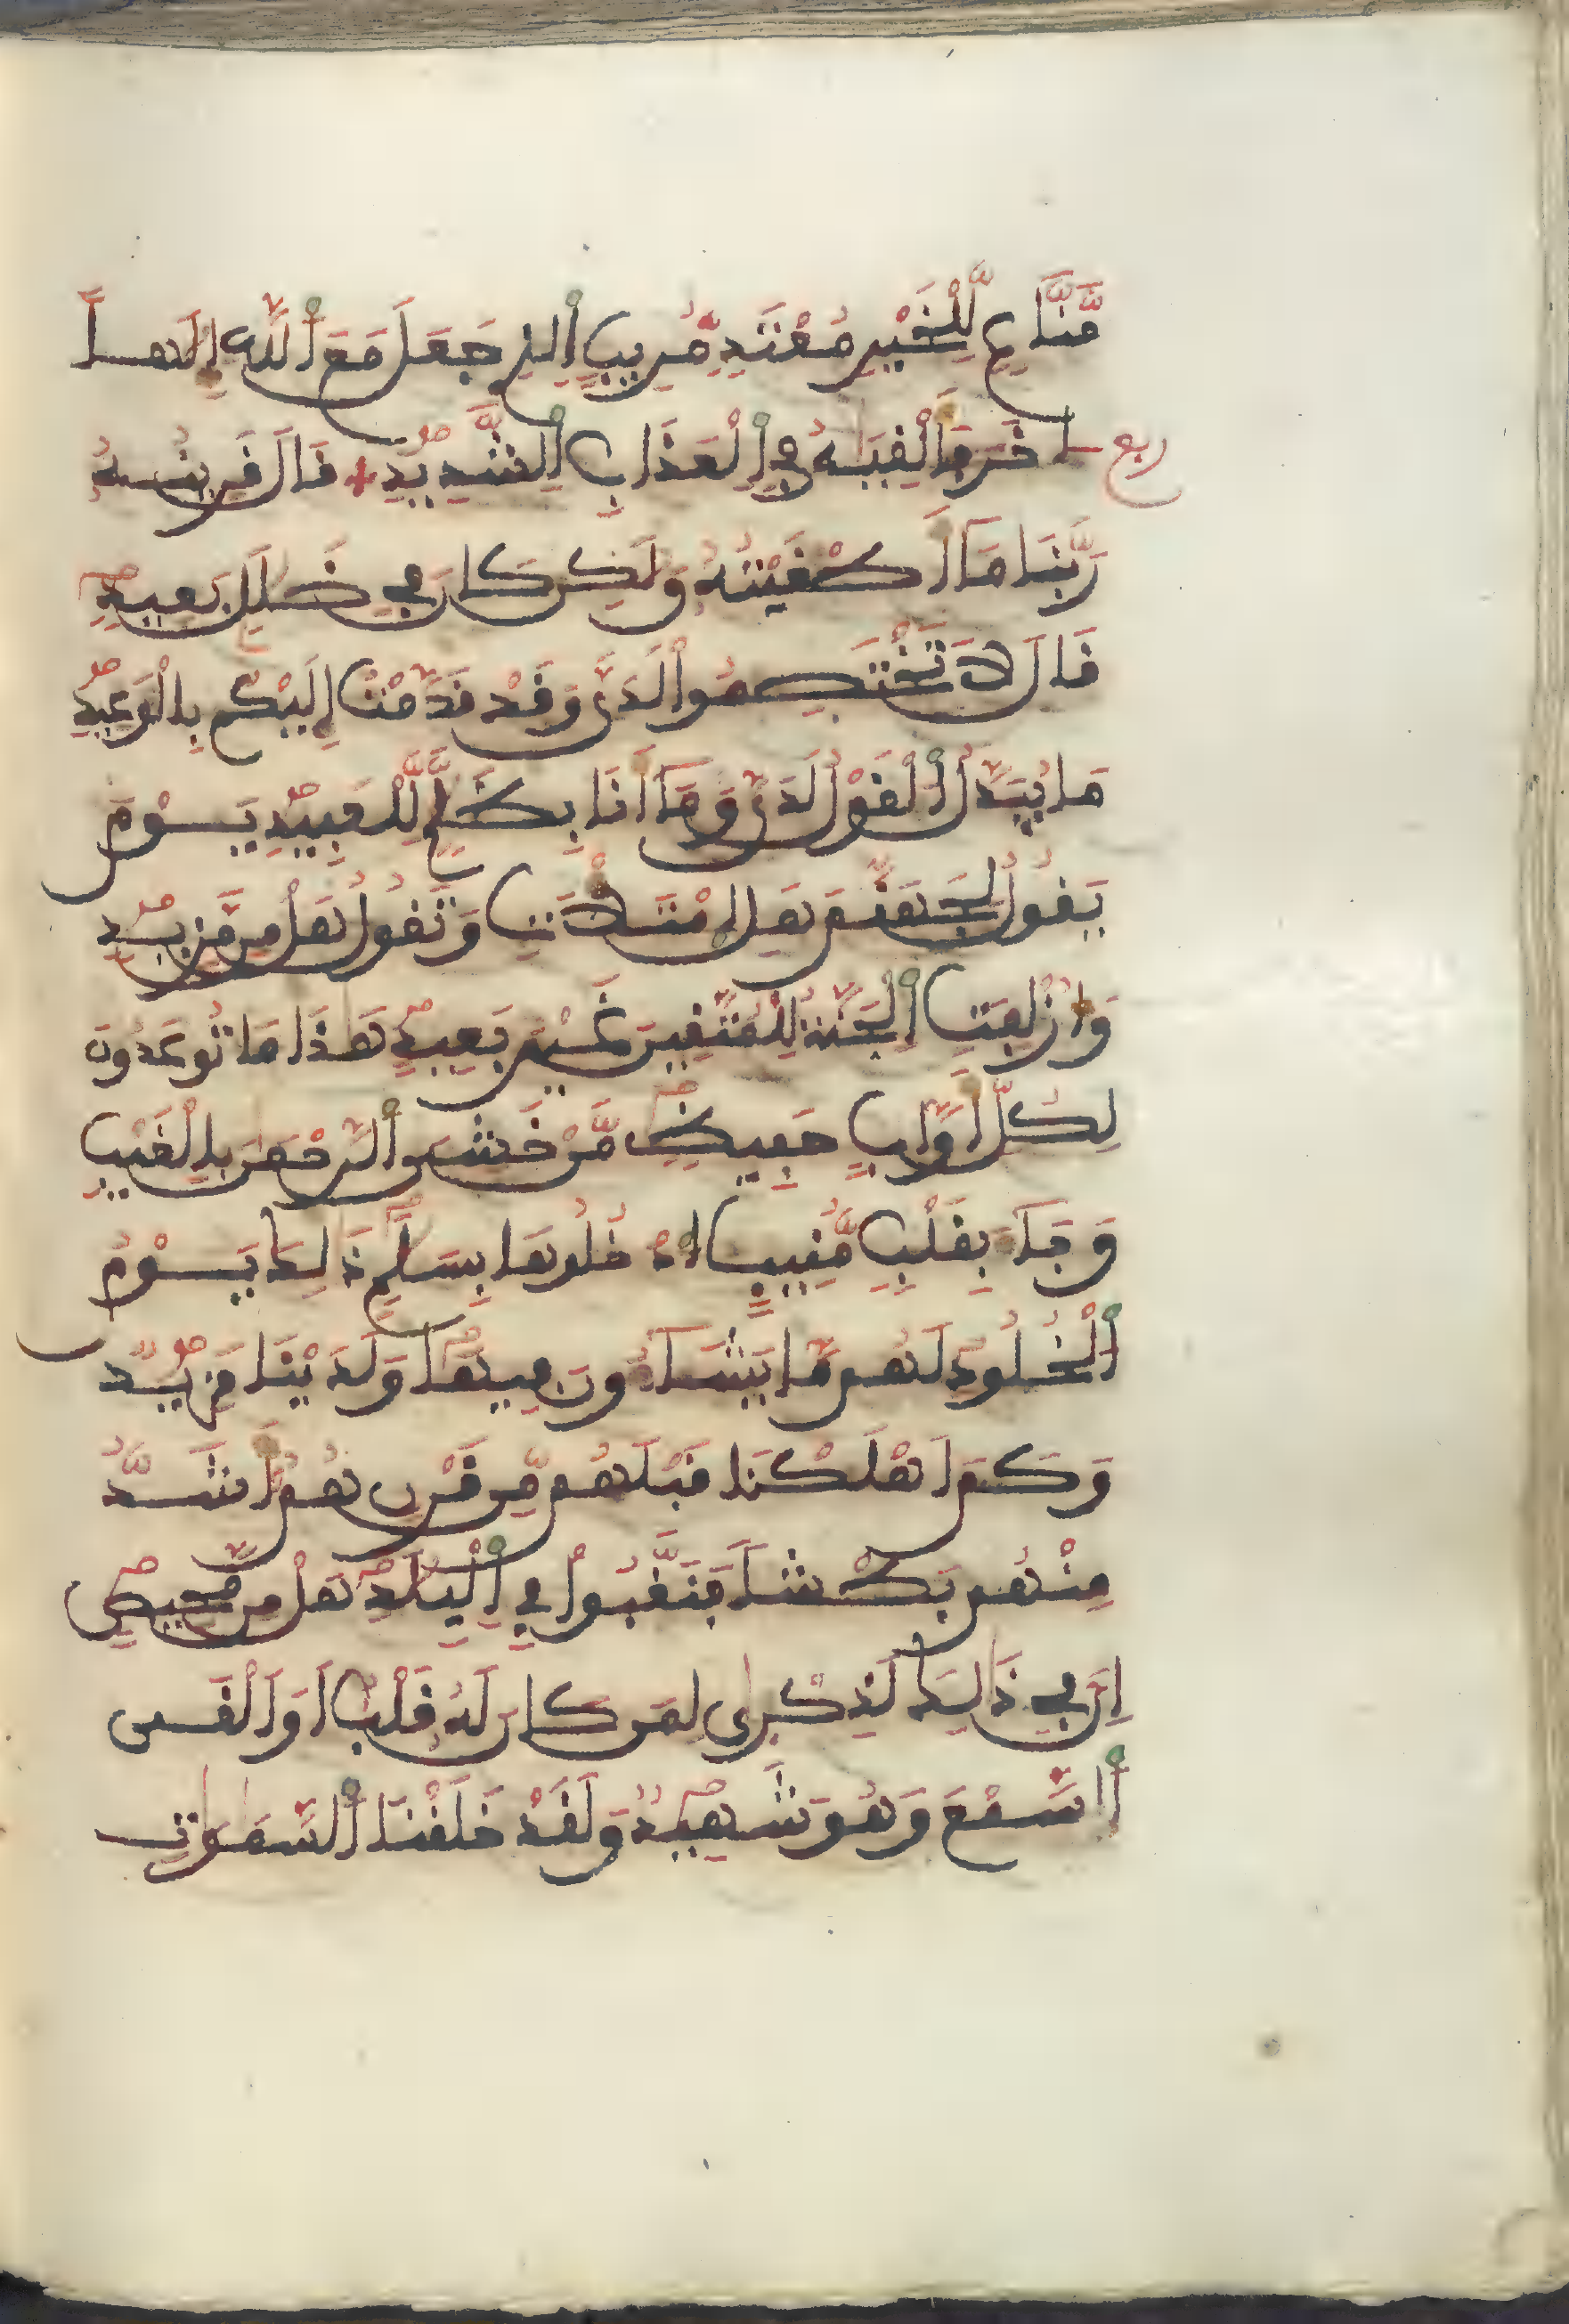 مَّنَّاعٍ لِّلْخَيْرِ مُعْتَدٍ مُّرِيبٍ اِلذِے جَعَلَ مَعَ اَللَّهِ إِلَٰهاً
ربع
اخَرَ فَأَلْفِيَٰهُ فِے اِلْعَذَابِ اِلشَّدِيدِ قَالَ قَرِينُهُ
رَبَّنَا مَا أَطْغَيْتُهُ وَلَٰكِن كَانَ فِے ضَلَٰلٍ بَعِيدٍ
قَالَ لَا تَخْتَصِمُوا لَدَيَّ وَقَدْ قَدَّمْتُ إِلَيْكُم بِالْوَعِيدِ
مَا يُبَدَّلُ اُلْقَوْلُ لَدَيَّ وَمَا أَنَا بِظَلَّٰمٍ لِّلْعَبِيدِ يَوْمَ
يَقُولُ لِجَهَنَّمَ هَلِ اِمْتَلَأْتِ وَتَقُولُ هَلْ مِن مَّزِيدٍ
وَأُزْلِفَتِ اِلْجَنَّةُ لِلْمُتَّقِينَ غَيْرَ بَعِيدٍ هَٰذَا مَا تُوعَدُونَ
لِكُلِّ أَوَّابٍ حَفِيظٍ مَّنْ خَشِيَ اَلرَّحْمَٰنَ بِالْغَيْبِ
وَجَاءَ بِقَلْبٍ مُّنِيبٍ ادْخُلُوهَا بِسَلَٰمٍ ذَٰلِكَ يَوْمُ
اُلْخُلُودِ لَهُم مَّا يَشَاءُونَ فِيهَا وَلَدَيْنَا مَزِيدٌ
وَكَمَ اَهْلَكْنَا قَبْلَهُم مِّن قَرْنٍ هُمُ أَشَدُّ
مِنْهُم بَطْشاً فَنَقَّبُوا فِے اِلْبِلَٰدِ هَلْ مِن مَّحِيصٍ
إِنَّ فِے ذَٰلِكَ لَذِكْرَىٰ لِمَن كَانَ لَهُ قَلْبٌ اَوَ اَلْقَى
اَلسَّمْعَ وَهُوَ شَهِيدٌ وَلَقَدْ خَلَقْنَا اَلسَّمَٰوَٰتِ